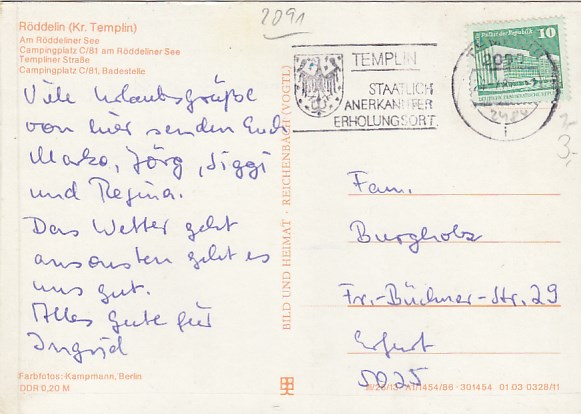 2091
Röddelin (Kr. Templin)
Am Röddeliner See
Campingplatz C/81 am Röddeliner See
Templiner Straße
Campingplatz C/81, Badestelle
Viele Urlaubsgrüße
von hier senden Euch
Marko, Jörg, Siggi
und Regina.
Das Wetter geht
ansonsten geht es
uns gut.
Alles Gute für
Ingrid
Farbfotos: Kampmann, Berlin
DDR 0,20 M
BILD UND HEIMAT · REICHENBACH (VOGTL)
TEMPLIN
STAATLICH
ANERKANNTER
ERHOLUNGSORT
Palast der Republik 10
2090
2,-
3,-
Fam.
Burgholz
Fr.-Büchner-Str. 29
Erfurt
5025
A1/1454/86 · 301454 01 03 0326/11